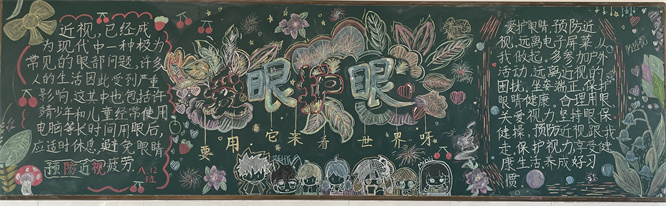 近视，已经成
为现代中一种极为
常见的眼部问题，许多
人的生活因此受到严重
影响，这其中也包括许
多青少年和儿童经常使用
电脑等长时间用眼后，
应适时休息，避免眼睛
疲劳
预防近视
八12班
爱眼护眼
要用它来看世界呀
爱护眼睛，预防近
视，远离电子屏幕，从
我做起，多参加户外
活动，远离近视的
困扰，坐姿端正，保护
眼睛健康，合理用眼
关爱视力，坚持眼保
健操，预防近视，跟我
走，保护视力，享受
康生活，养成好习
惯